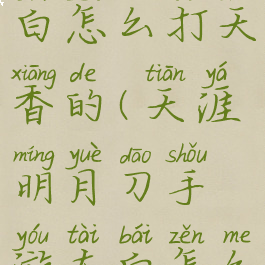 白怎么打天
xiāng de tiān yá
香的(天涯
míng yuè dāo shǒu
明月刀手
yóu tài bái zěn me
游太白怎么